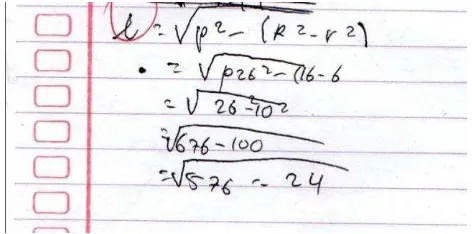 l = √p² - (R² - r²)
= √p26² - (16 - 6
= √26² - 10²
= √676 - 100
= √576 = 24